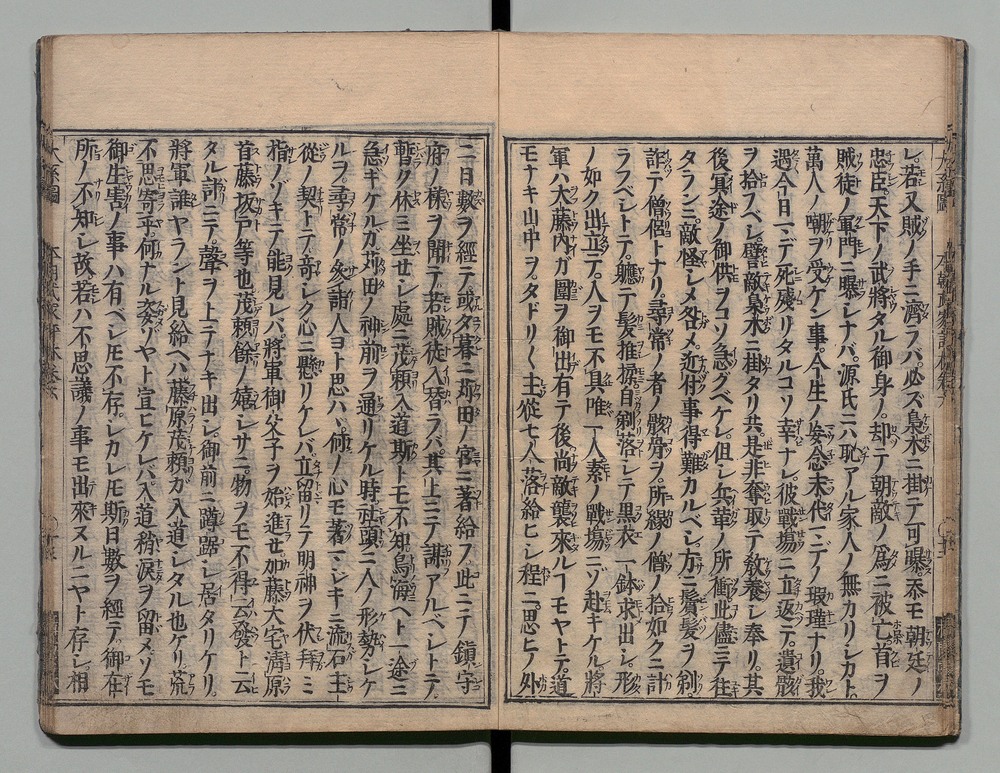 レ若又賊ノ手ニ濟ラバ必ズ梟木ニ掛テ可曝忝モ朝廷ノ
忠臣天下ノ武將タル御身ノ却テ朝敵ノ爲ニ被亡首ヲ
賊徒ノ軍門ニ曝レナバ源氏ニハ恥アル家人ノ無カリシカト
萬人ノ嘲ヲ受ケン事今生ノ妄念末代マデノ瑕瑾ナリ我
過今日マデ死殘リタルコソ幸ナレ彼戰場ニ立返テ遺骸
ヲ拾フベシ譬敵梟木ニ掛タリ共是非奪取テ敎養シ奉リ其
後冥途ノ御供ヲコソ急グベケレ但シ兵革ノ所衝此儘ニテ往
タランニ敵怪シメ咎メ近付事得難カルベシ方ニ鬢髮ヲ剃
詐テ僧侶トナリ尋常ノ者ノ骸骨ヲ所緣ノ僧ノ拾如クニ計
ラフベシトテ軈テ髮推揉自剃落シテ黒衣一鉢求出シ形
ノ如ク出立テ人ヲモ不具唯一人素ノ戰場ニゾ赴キケル將
軍ハ大藤內ガ圍ヲ御出有テ後尚敵襲來ルヿモヤトテ道
モナキ山中ヲタドリ〱主從七人落給ヒシ程ニ思ヒノ外
ニ日數ヲ經テ或夕暮ニ苅田ノ宮ニ著給フ此ニテ鎭守
府ノ樣ヲ聞テ若賊徒入替ラバ其上ニテ謀アルベシトテ
暫ク休ミ坐セシ處ニ茂賴入道斯トモ不知鳥海ヘト一途ニ
急ギケルガ苅田ノ神前ヲ通リケル時社頭ニ人ノ形勢シケ
ルヲ尋常ノ參詣人ヨト思ハヾ何ノ心モ著マジキニ流石主
從ノ契トテ奇シク心ニ懸リケレバ立留リテ明神ヲ伏拜ミ
指ノゾキテ能見レバ將軍御父子ヲ始進セ加藤大宅淸原
首藤坂戸等也茂賴餘ノ嬉シサニ物ヲモ不得云發ト云
タル計ニテ聲ヲ上テナキ出シ御前ニ蹲踞シ居タリケリ
將軍誰ヤラント見給ヘハ藤原茂賴カ入道シタル也ケリ荒
不思寄乎何ナル姿ゾヤト宣ヒケレバ入道稍淚ヲ留メソモ
御生害ノ事ハ有ベシ𪜈不存シカレ𪜈斯日數ヲ經テ御在
所ノ不知レ故若ハ不思議ノ事モ出來ヌルニヤト存シ相